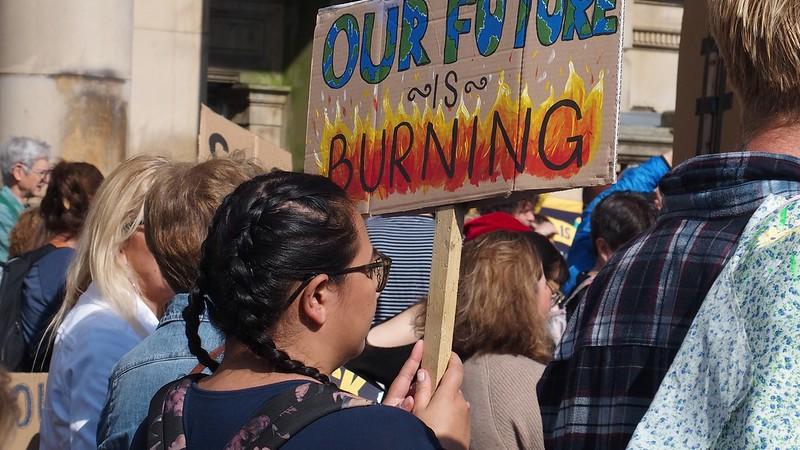 OUR FUTURE
~IS~
BURNING
IS